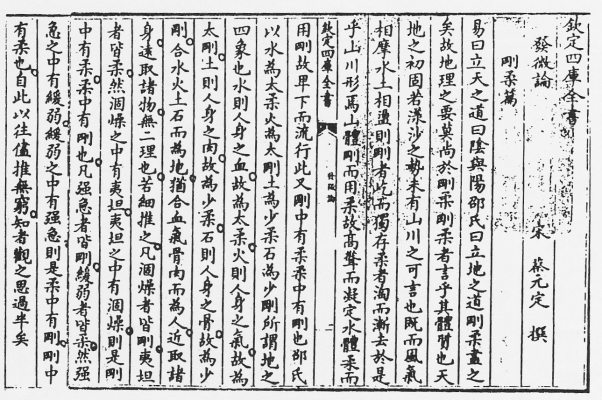 欽定四庫全書
發微論
宋 蔡元定 撰
剛柔篇
易曰立天之道曰陰與陽邵氏曰立地之道剛柔盡之
矣故地理之要莫尚於剛柔剛柔者言乎其體質也天
地之初固若漾沙之勢未有山川之可言也既而風氣
相摩水土相盪則剛者屹而獨存柔者淘而漸去於是
乎山川形焉山體剛而用柔故高聳而凝定水體柔而
欽定四庫全書
發微論
二
用剛故卑下而流行此又剛中有柔柔中有剛也邵氏
以水為太柔火為太剛土為少柔石為少剛所謂地之
四象也水則人身之血故為太柔火則人身之氣故為
太剛土則人身之肉故為少柔石則人身之骨故為少
剛合水火土石而為地猶合血氣骨肉而為人近取諸
身遠取諸物無二理也若細推之凡涸燥者皆剛夷坦
者皆柔然涸燥之中有夷坦夷坦之中有涸燥則是剛
中有柔柔中有剛也凡强急者皆剛緩弱者皆柔然强
急之中有緩弱緩弱之中有强急則是柔中有剛剛中
有柔也自此以往儘推無窮知者觀之思過半矣